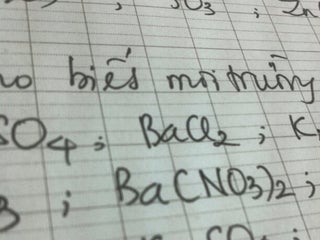 ; SO3 ; Zn
biết môi trường
SO4 ; BaCl2 ; K
; Ba(NO3)2 ;